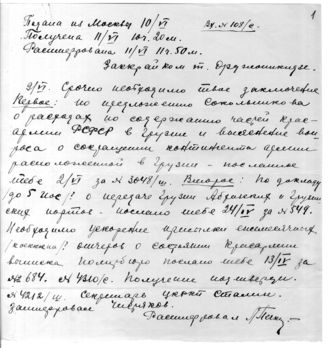 1
Подана из Москвы 10/VI Вх. № 108/с.
Получена 11/VI 10 ч. 20 м.
Расшифрована 11/VI 11 ч. 50 м.
Заккрайком т. Орджоникидзе.
9/VI. Срочно необходимо твое заключение
Первое: по предложению Сокольникова
о расходах по содержанию частей Крас-
армии РСФСР в Грузии и выяснение воп-
роса о сокращении контингента армии
расположенной в Грузии - посланное
тебе 2/VI за № 3048/ш. Второе: по докладу
о передаче Грузии Абхазских и Грузин
ских портов - послано тебе 24/IV за № 549.
Необходимо ускорение присылки
отчетов о состоянии Красармии
выписка Политбюро послано тебе 13/IV за
№ 684. № 4310/с. Получение подтверди.
№ 4212/ш. Секретарь цкркп Сталин.
зашифровал Чижиков.
Расшифровал